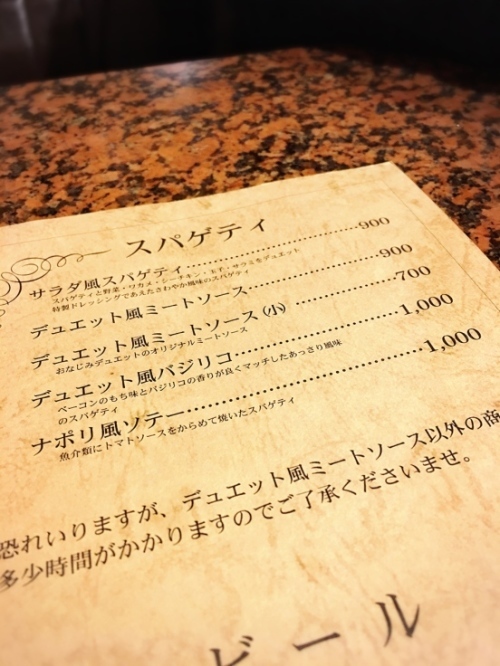 スパゲティ
サラダ風スパゲティ……………………900
スパゲティと野菜・ワカメ・シーチキン・玉子・サウミをデュエット
特製ドレッシングであえたさわやか風味のスパゲティ
デュエット風ミートソース………………900
デュエット風ミートソース(小)…………700
おなじみデュエットのオリジナルミートソース
デュエット風バジリコ……………………1,000
ベーコンのもち味とバジリコの香りが良くマッチしたあっさり風味
のスパゲティ
ナポリ風ソテー……………………………1,000
魚介類にトマトソースをからめて焼いたスパゲティ
恐れいりますが、デュエット風ミートソース以外の商
多少時間がかかりますのでご了承くださいませ。
ビール